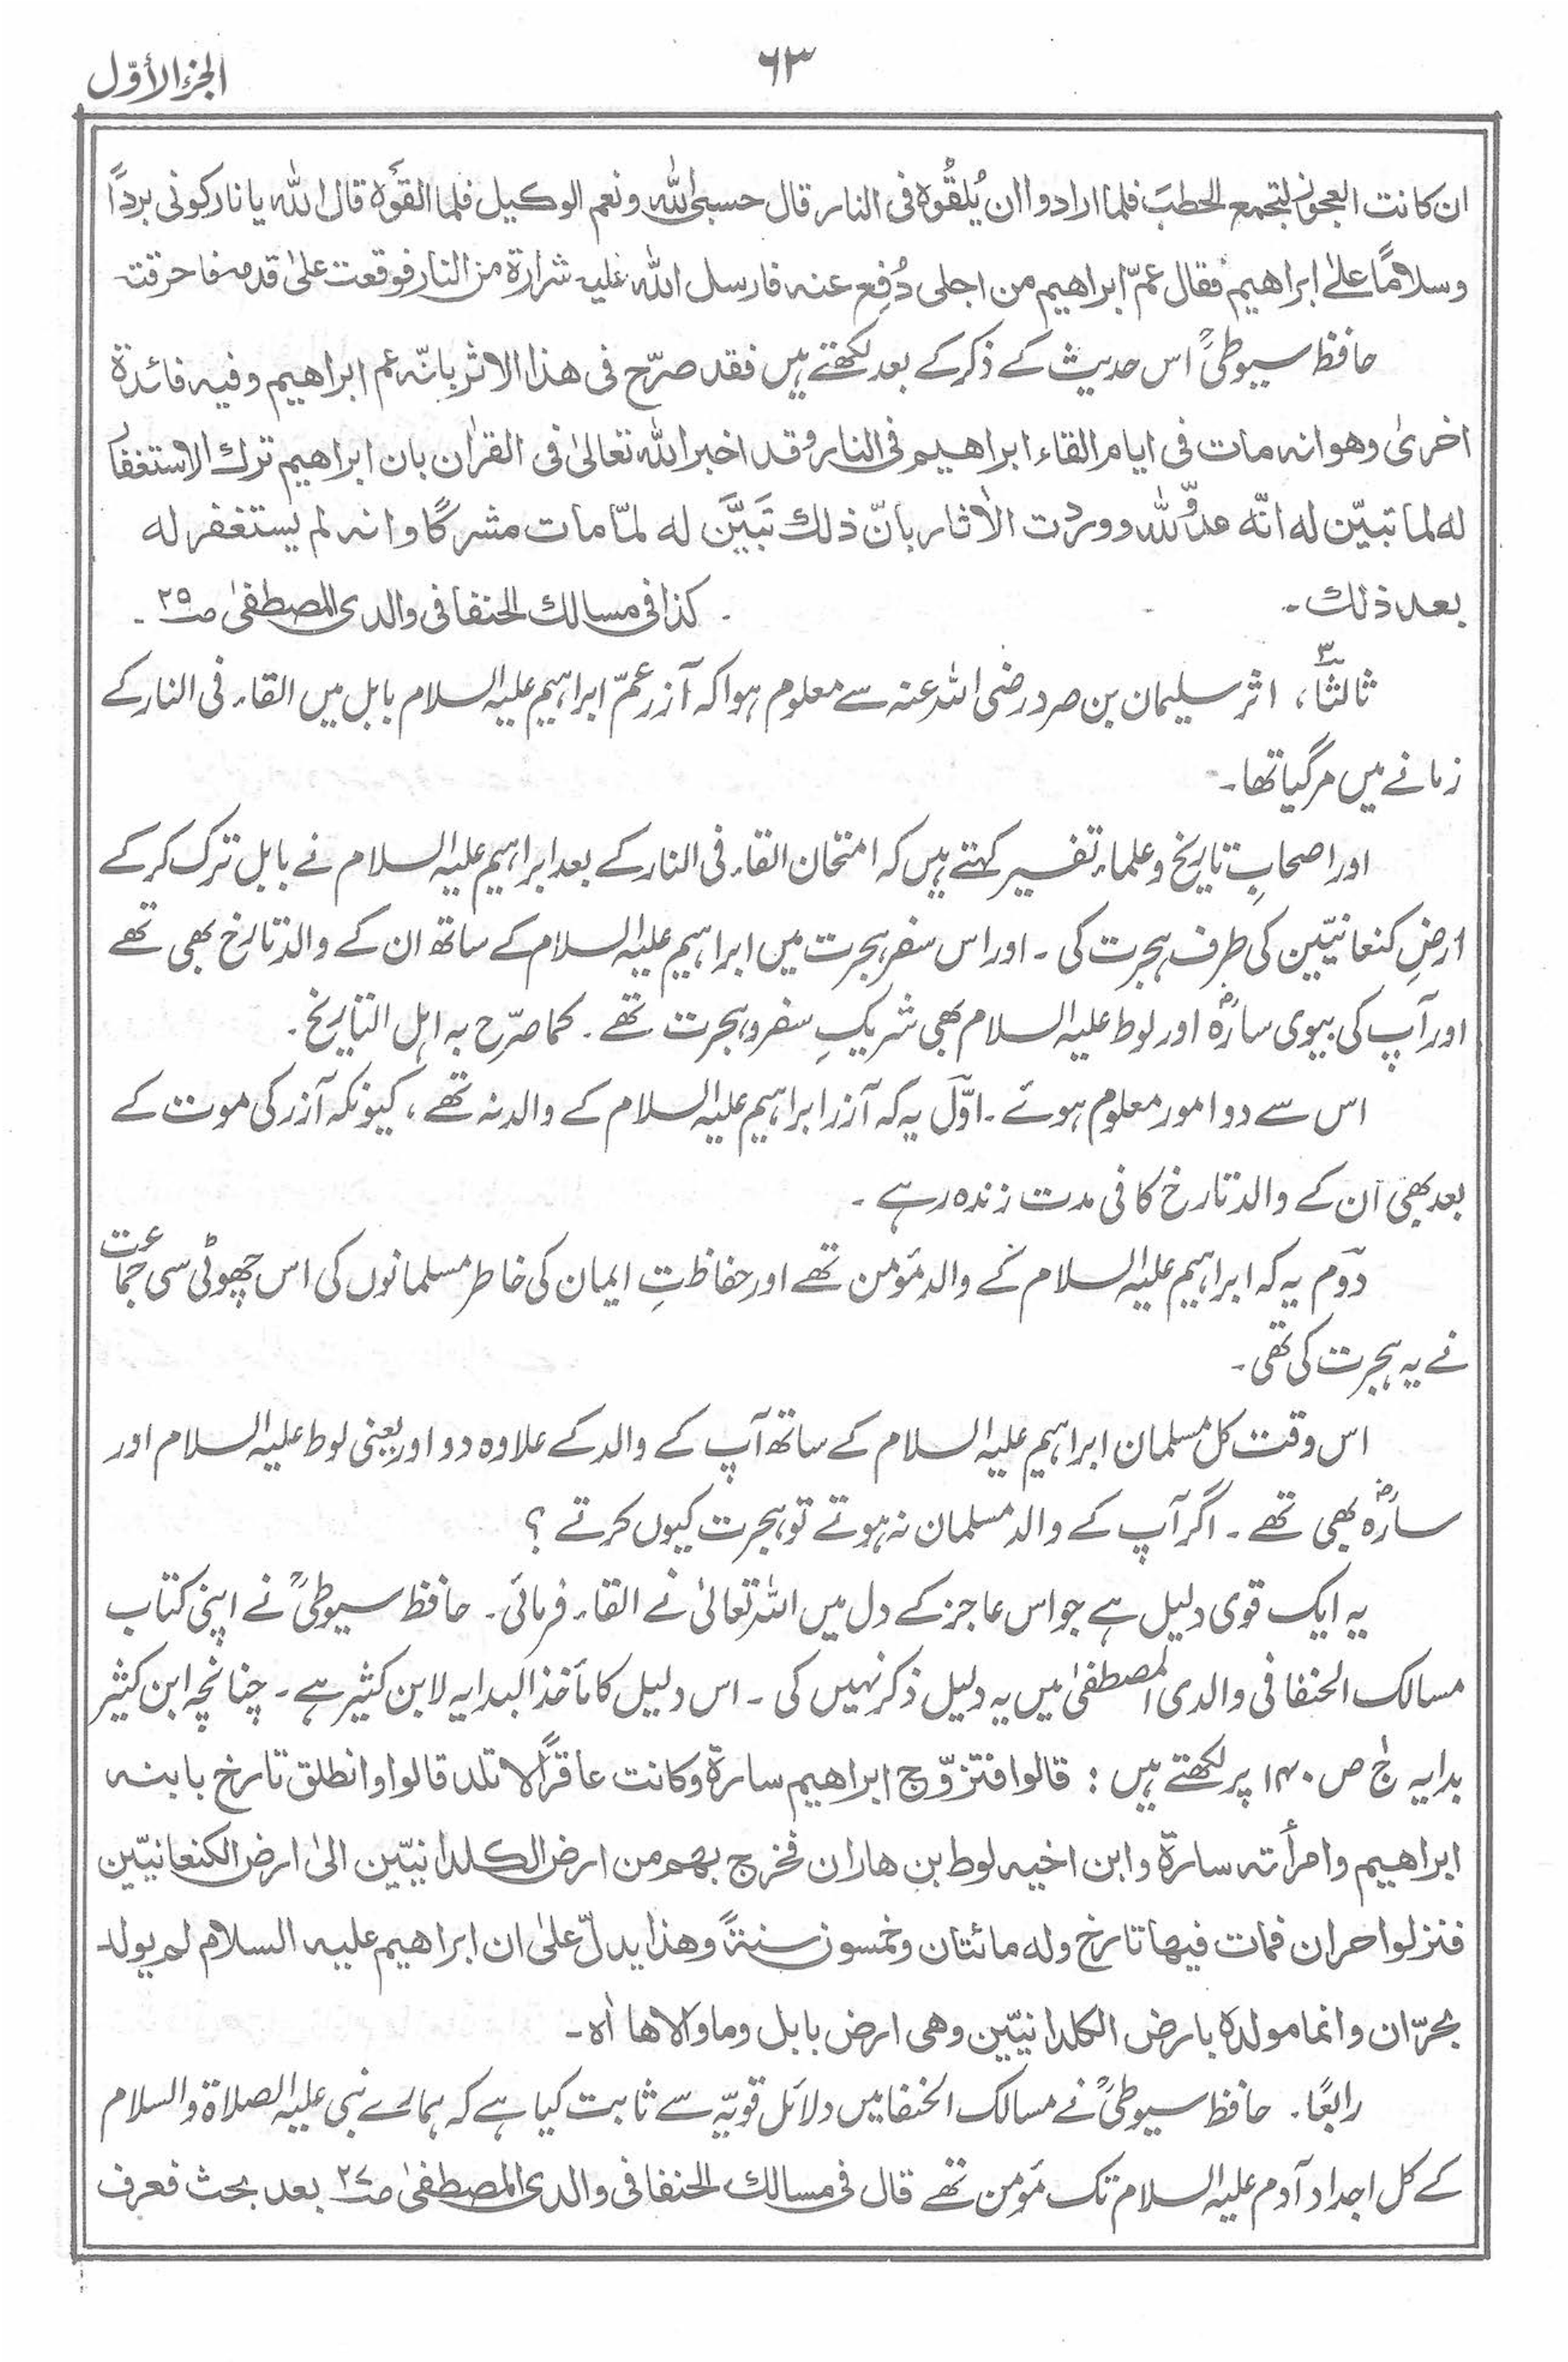 الجزء الأوّل
۶۳
ان كانت العجوز لتجمع الحطبَ فلما ارادوا ان يُلقُوه فى النار قال حسبى الله ونعم الوكيل فلما القَوه قال الله يا نار كونى بردًا
وسلامًا علىٰ ابراهيم فقال عمّ ابراهيم من اجلى دُفِع عنه فارسل الله عليه شرارة من النار فوقعت علىٰ قدمه فاحرقته
حافظ سیوطیؒ اس حدیث کے ذکر کے بعد لکھتے ہیں فقد صرّح فى هذا الاثر بانّه عم ابراهيم وفيه فائدة
اخرىٰ وهو انه مات فى ايام القاء ابراهيم فى النار وقد اخبر الله تعالىٰ فى القرأن بان ابراهيم ترك الاستغفار
له لما تبيّن له انّه عدوٌّ لله ووردت الأثار بانّ ذلك تَبَيَّنَ له لمّا مات مشركًا وانه لم يستغفر له
بعد ذلك۔ كذا فى مسالك الحنفا فى والدى المصطفىٰ ص۲۵۔
ثالثًا۳، اثر سلیمان بن صرد رضی اللہ عنہ سے معلوم ہوا کہ آزر عمّ ابراہیم علیہ السلام بابل میں القاء فی النار کے
زمانے میں مرگیا تھا۔
اور اصحابِ تاریخ و علماء تفسیر کہتے ہیں کہ امتحان القاء فی النار کے بعد ابراہیم علیہ السلام نے بابل ترک کر کے
ارضِ کنعانیّین کی طرف ہجرت کی۔ اور اس سفر ہجرت میں ابراہیم علیہ السلام کے ساتھ ان کے والد تارخ بھی تھے
اور آپ کی بیوی سارہؓ اور لوط علیہ السلام بھی شریکِ سفر و ہجرت تھے۔ کما صرّح بہ اہل التاریخ۔
اس سے دو امور معلوم ہوئے۔ اوّل یہ کہ آزر ابراہیم علیہ السلام کے والد نہ تھے، کیونکہ آزر کی موت کے
بعد بھی ان کے والد تارخ کافی مدت زندہ رہے۔
دوّم یہ کہ ابراہیم علیہ السلام کے والد مؤمن تھے اور حفاظتِ ایمان کی خاطر مسلمانوں کی اس چھوٹی سی جماعت
نے یہ ہجرت کی تھی۔
اس وقت کل مسلمان ابراہیم علیہ السلام کے ساتھ آپ کے والد کے علاوہ دو اور یعنی لوط علیہ السلام اور
سارہؓ بھی تھے۔ اگر آپ کے والد مسلمان نہ ہوتے تو ہجرت کیوں کرتے؟
یہ ایک قوی دلیل ہے جو اس عاجز کے دل میں اللہ تعالیٰ نے القاء فرمائی۔ حافظ سیوطیؒ نے اپنی کتاب
مسالک الحنفا فی والدی المصطفیٰ میں یہ دلیل ذکر نہیں کی۔ اس دلیل کا مأخذ البدایہ لابن کثیر ہے۔ چنانچہ ابن کثیر
بدایہ ج۱ ص ۱۴۰ پر لکھتے ہیں: قالوا فتزوّج ابراهيم سارة وكانت عاقرًا لا تلد قالوا وانطلق تارخ بابنه
ابراهيم وامرأته سارة وابن اخيه لوط بن هاران فخرج بهم من ارض الكلدانيّين الىٰ ارض الكنعانيّين
فنزلوا حران فمات فيها تارخ وله مائتان وخمسون سنةً وهذا يدلّ علىٰ ان ابراهيم عليه السلام لم يولد
بحرّان وانما مولده بارض الكلدانيّين وهى ارض بابل وما والاها اه۔
رابعًا۔ حافظ سیوطیؒ نے مسالک الحنفا میں دلائل قویّہ سے ثابت کیا ہے کہ ہمارے نبی علیہ الصلاة والسلام
کے کل اجداد آدم علیہ السلام تک مؤمن تھے قال فى مسالك الحنفا فى والدى المصطفىٰ ص۲۷ بعد بحث فعرف